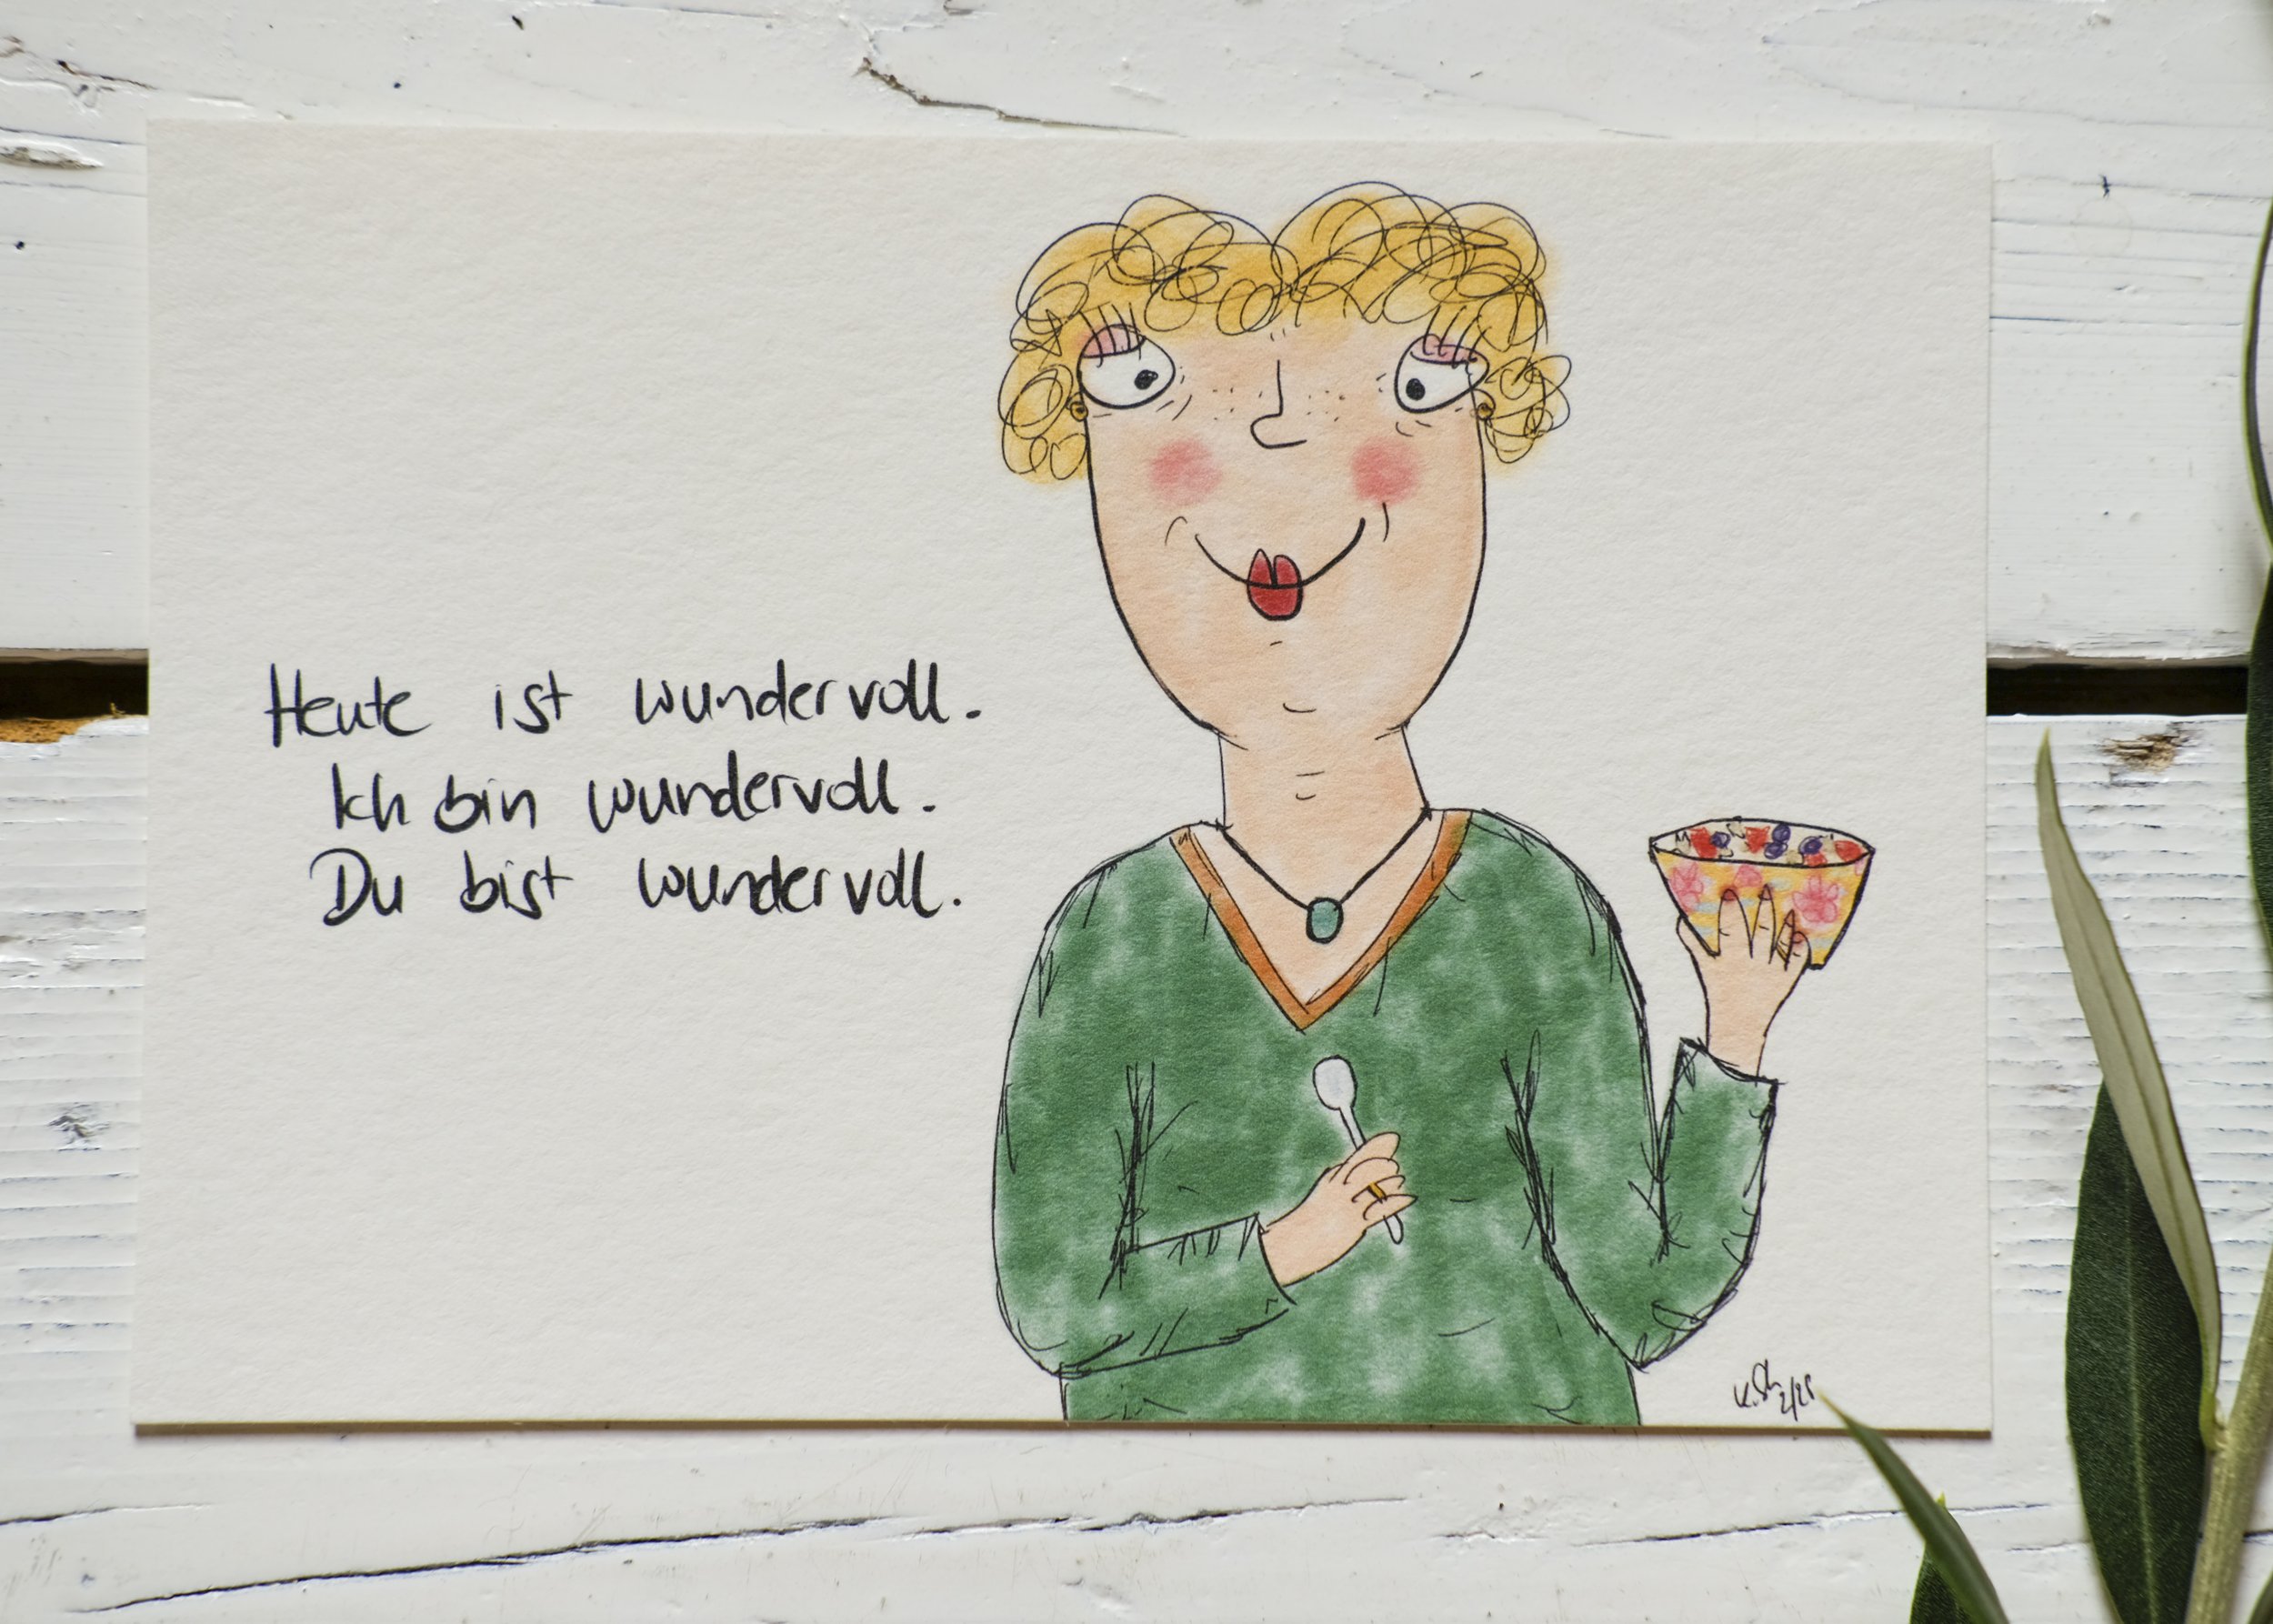 Heute ist wundervoll.
Ich bin wundervoll.
Du bist wundervoll.